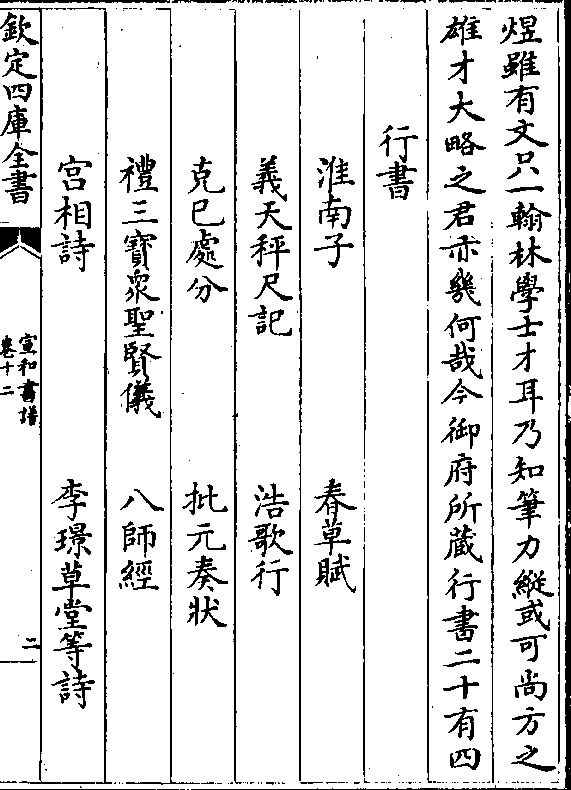 煜雖有文只一翰林學士才耳乃知筆力縱或可尚方之
雄才大略之君亦幾何哉今御府所藏行書二十有四
行書
淮南子　春草賦
義天秤尺記　浩歌行
克巳處分　批元奏狀
禮三寶衆聖賢儀　八師經
宫相詩　李璟草堂等詩
欽定四庫全書
宣和書譜
卷十二
二